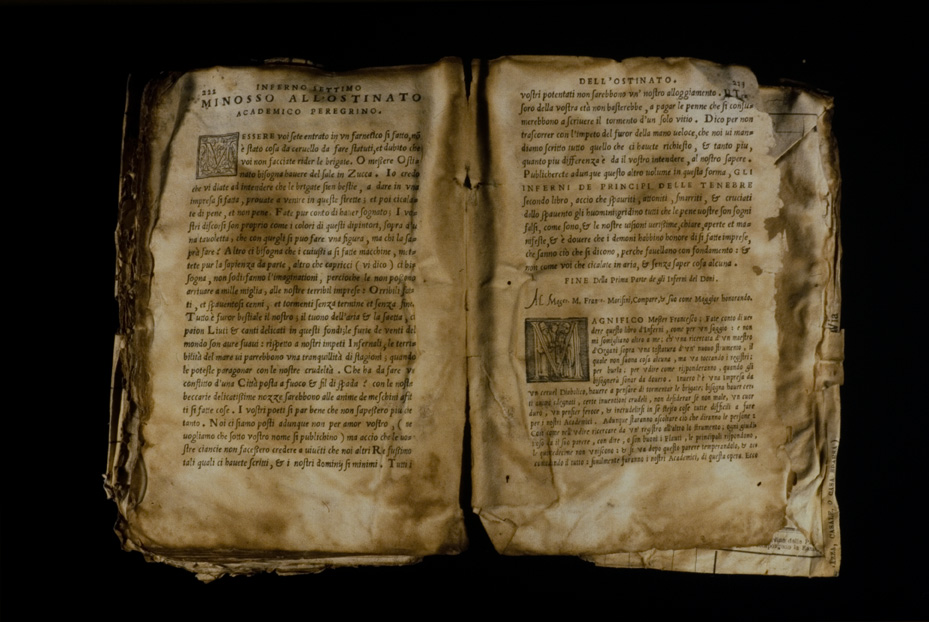 222
INFERNO SETTIMO
MINOSSO ALL'OSTINATO
ACADEMICO PEREGRINO.
ESSERE voi sete entrato in vn farnetico si fatto,
è stato cosa da ceruello da fare statuti, et dubito che
voi non facciate rider le brigate. O meßere Osti-
nato bisogna hauere del sale in Zucca. Io credo
che vi diate ad intendere che le brigate sien bestie, a dare in vna
impresa si fatta, prouate a venire in queste strette; et poi cicala-
te di pene, et non pene. Fate pur conto di hauer sognato; I vo-
stri discorsi son proprio come i colori di questi dipintori, sopra a
na tauoletta; che con quegli si può fare vna figura, ma chi la
prà fare? Altro ci bisogna che i cutusti a si fatte macchine,
tete pur la sapienza da parte, altro che capricci (vi dico) ci bi-
sogna, non sodisfanno l'imaginationi, percioche le non possono
arriuare a mille miglia, alle nostre terribil imprese? Orribili
ti, et spauentosi cenni, et tormenti senza termine et senza fine.
Tutto è furor bestiale il nostro; il tuono dell'aria & la saetta, ci
paion Liuti & canti delicati in questi fondi; le furie de venti del
mondo son aure suaui; rispetto a nostri impeti Infernali, le terri-
bilità del mare ui parrebbono vna tranquillità di stagioni; quando
le poteste paragonar con le nostre crudeltà. Che ha da fare
conflitto d'una Città posta a fuoco & fil di spada? con le nostre
beccarie delicatissime nozze sarebbono alle anime de meschini afflit
ti si fatte cose. I vostri poeti si par bene che non sapesero più che
tanto. Noi ci siamo posti adunque non per amor vostro, ( se
uogliamo che sotto vostro nome si publichino ) ma accio che le vo-
stre ciancie non facestero credere a uiuenti che noi altri Re fußimo
tali quali ci hauete scritti, & i nostri dominij si minimi. Tutti
DELL'OSTINATO.
223
vostri potentati non sarebbono vn' nostro alloggiamento.
soro della vostra età non basterebbe, a pagar le penne che si consu-
merebbono a scriuere il tormento d'un solo vitio. Dico per non
trascorrer con l'impeto del furor della mano veloce, che noi ui man-
diamo scritto tutto quello che ci hauete richiesto, & tanto più,
quanto più differenza è da il vostro intendere, al nostro sapere.
Publicherete adunque questo altro volume in questa forma, GLI
INFERNI DE PRINCIPI DELLE TENEBRE
secondo libro, accio che spauriti, attoniti, smarriti, & cruciati
dello spauento gli huomini gridino tutti che le pene vostre son sogni
falsi, come sono, & le nostre uisioni uerissime, chiare, aperte et ma-
nifeste, & è douere che i demoni habbino honore di si fatte imprese,
che sanno ciò che si dicono, perche fauellono con fondamento: &
non come voi che cicalate in aria, & senza saper cosa alcuna.
FINE Della Prima Parte de gli Inferni del Doni.
Al Magn. M. Franc. Morsini, Compare, & suo come Maggior honorando.
AGNIFICO Messer Francesco; Fate conto di ve-
dere questo libro d'Inferni, come per vn saggio: e non
mi somigliano altro a me; ch'vna ricercata d'vn maestro
d'Organi sopra vna tastatura d'vn' nuouo strumento, il
quale non suona cosa alcuna, ma va toccando i registri;
per burla; per vdire come risponderanno, quando gli
bisognerà sonar da douero. Inuero l'è vna impresa da
vn ceruel Diabolico, hauere a pensare di tormentar le brigate; bisogna hauer cer-
ti uisioni sdegnati, certe inuentioni crudeli, non desiderar se non male, vn cuor
duro, vn pensier feroce, & incrudelirsi in se stesso cose tutte difficili a fare
per i nostri Academici. Adunque staranno ascoltare ciò che diranno le persone:
Così come nell'vdire ricercare da vn registro all'altro lo strumento; ogni giudi-
cioso dà il suo parere, con dire, è son buoni i Flauti, le principali rispondono,
le quintedecime non vniscono: & se vn dopo questo parere temperandole, & ac-
conciando il tutto a finalmente faranno i nostri Academici, di questa opera. Ecco